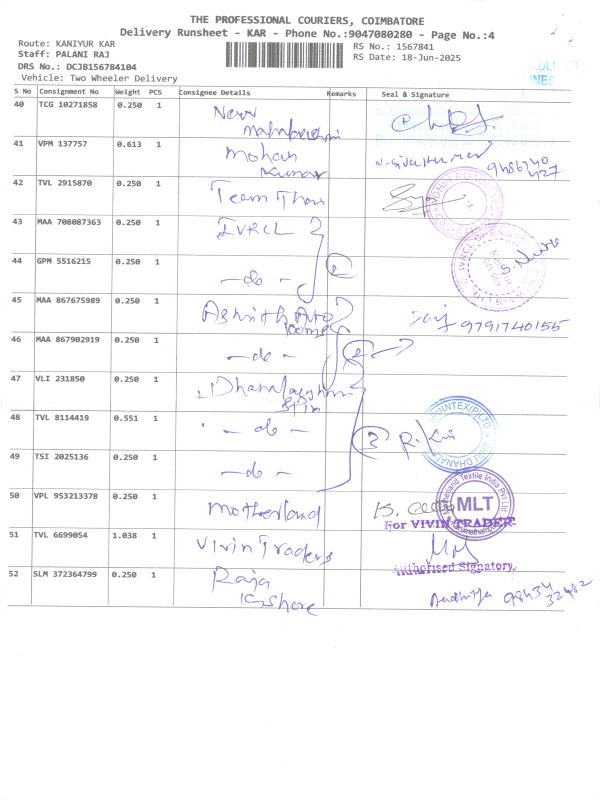 THE PROFESSIONAL COURIERS, COIMBATORE
Delivery Runsheet - KAR - Phone No.:9047080280 - Page No.:4
Route: KANIYUR KAR
RS No.: 1567841
Staff: PALANI RAJ
RS Date: 18-Jun-2025
DRS No.: DCJB156784104
Vehicle: Two Wheeler Delivery
S No Consignment No Weight PCS Consignee Details Remarks Seal & Signature
40 TCG 10271858 0.250 1 New
41 VPM 137757 0.613 1 Mohan
Kumar
9486740
427
42 TVL 2915870 0.250 1 Team Thai
43 MAA 708087363 0.250 1 IVRCL
44 GPM 5516215 0.250 1 -do- 2
45 MAA 867675989 0.250 1 9791740155
46 MAA 867902919 0.250 1 -do- 2
47 VLI 231850 0.250 1
48 TVL 8114419 0.551 1 -do- 3
49 TSI 2025136 0.250 1 -do-
50 VPL 953213378 0.250 1 Motherland
MLT
For VIVIN TRADER
51 TVL 6699054 1.038 1 Vivin Traders
Authorised Signatory
52 SLM 372364799 0.250 1 Raja
Kishore
98434
32482